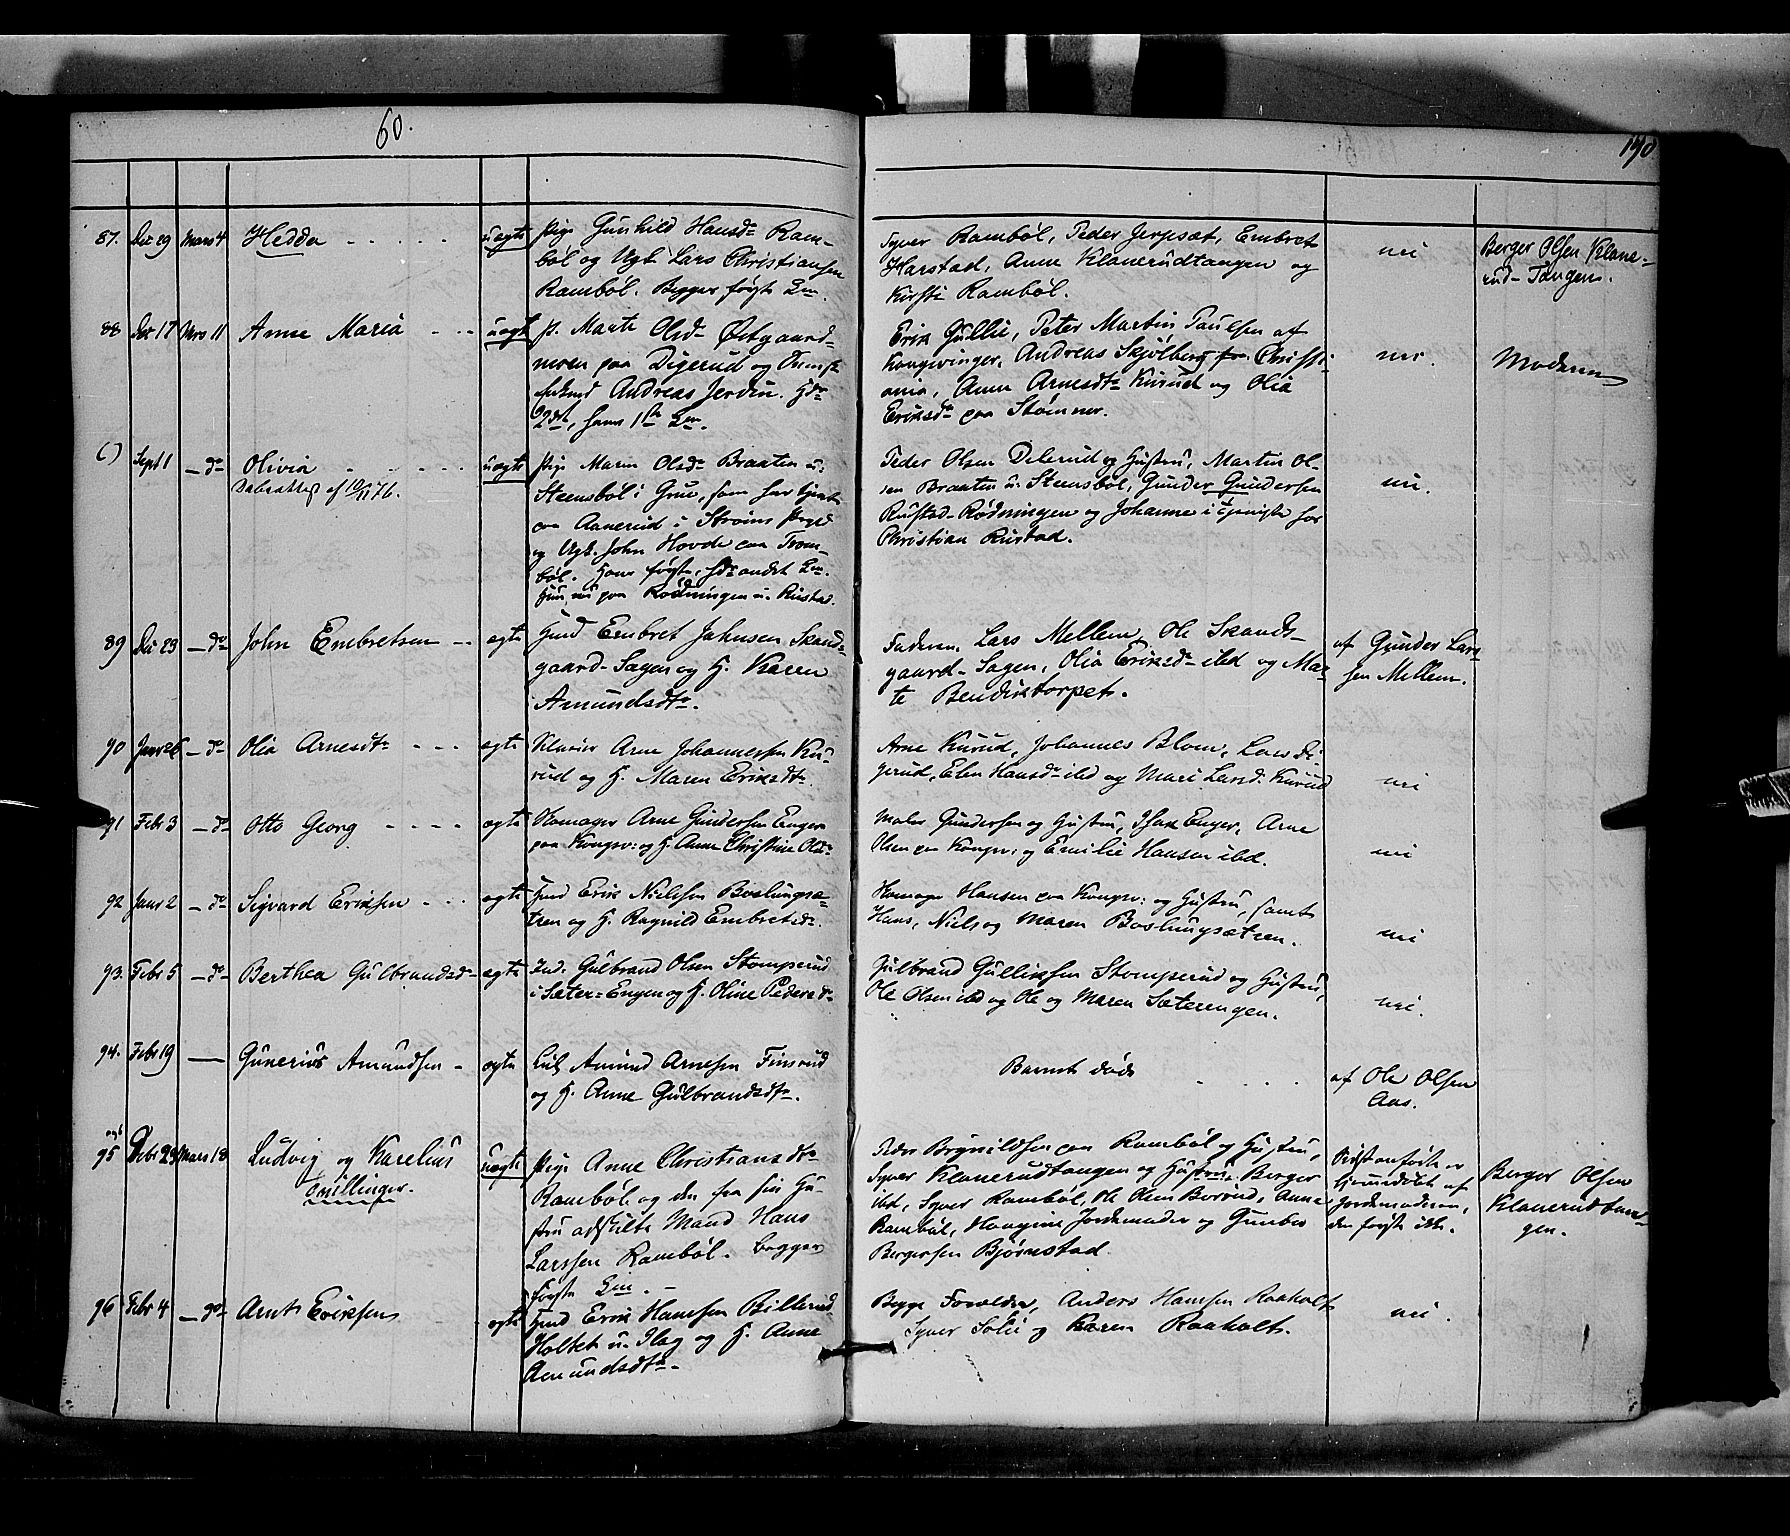 60.
190
87. Dec 29 Mars 4 Hedda uægte Pige Gunhild Hansdr Ram-
bøl og Ugk Lars Christiansen
Rambøl. Begges første Lm.
Syver Rambøl, Peder Jerpsæt, Embret
Harstad, Anne Klanerudtangen og
Kirsti Rambøl.
nei
Berger Olsen Klane-
rud-Tangen.
88 Dec 17 Mrs 11 Anne Maria uægte P. Marte Olsdr Østgaard-
moen paa Digerud og
Andreas Jordin. Hds
2det, hans 1ste Lm.
Erik Gullie, Peter Martin Paulsen af
Kongsvinger, Andreas Skjølberg fra Christi-
ania, Anne Arnesdtr Kurud og Olia
Eriksdr paa Stømner.
nei.
Moderen
( ) Sept 1 - do Olivia uægte Pige Maren Olsdr Braaten u.
Daabsattest af 10/11 76.
Steensbøl i Grue, som har tjent
paa Aanerud i Strøms Præstgd
og Ugk. John Hovde paa Trom-
bøl. Hans første, hds andet Lm.
Hun nu paa Rødningen u. Rustad.
Peder Olsen Delerud og Hustru, Martin Ol-
sen Braaten u. Steensbøl, Gunder Gundersen
Rustad-Rødningen og Johanne i Tjeneste hos
Christian Rustad.
nei.
89 Dec 23 - do John Embretsen ægte Hmd Embret Johnsen Skands-
gaard-Sagen og H. Karen
Amundsdtr.
Faderen, Lars Mellem, Ole Skands-
gaard-Sagen, Olia Eriksdr ibd og Mar-
te Bendikstorpet.
af Gunder Lars-
sen Mellem.
90 Janr 26 - do Olia Arnesdtr ægte Arne Johannessen Ku-
rud og H. Maren Eriksdtr.
Arne Kurud, Johannes Blom, Lars Di-
gerud, Elen Hansdr ibd og Mari Larsd. Kurud
nei
91 Febr 3 - do Otto Georg ægte Skomager Arne Gundersen Enger
paa Kongsv: og H. Anne Christine Olsdr
Maler Gundersen og Hustru, Isak Enger, Arne
Olsen paa Kongsv: og Emilie Hansen ibd.
nei
92 Janr 2 - do Sigvard Eriksen ægte Hmd Erik Nielsen Baslungsæ-
tren og H. Ragnild Embretsdr.
Skomager Hansen paa Kongsv: og Hustru, samt
Hans, Niels og Maren Baslungsætren.
nei
93. Febr 5 - do Berthea Gulbrandsdr ægte Ind. Gulbrand Olsen Stomperud
i Sæter-Engen og H. Oline Pedersdr
Gulbrand Gulliksen Stomperud og Hustru,
Ole Olsen ibd og Ole og Maren Sæterengen.
nei.
94. Febr 19 Gunerius Amundsen ægte Amund Arnesen Finsrud
og H. Anne Gulbrandsdtr.
Barnet døde
af Ole Olsen
Aas.
95 Febr 29 Mars 18 Ludvig og Karelius uægte Pige Anne Christiansdtr
Tvillinger.
Rambøl og den fra sin Hu-
stru adskilte Mand Hans
Larssen Rambøl. begges
første Lm.
Peder Børgnildsen paa Rambøl og Hustru,
Syver Klanerudtangen og Hustru, Berger
ibd, Syver Rambøl, Ole Olsen Borrud, Anne
Rambøl, Jordemoder og Gunder
Bergersen Bjørnstad.
Sidstanførte er
hjemmedøbt af
Jordemoderen,
den første ikke.
Berger Olsen
Klanerudtan-
gen.
96 Febr 4 - do Arnt Eriksen ægte Hmd Erik Hansen Billerud
Holtet u. Ilag og H. Anne
Amundsdtr.
Begge Forældre, Anders Hansen Raaholt
Syver Solie og Karen Raaholt.
nei.